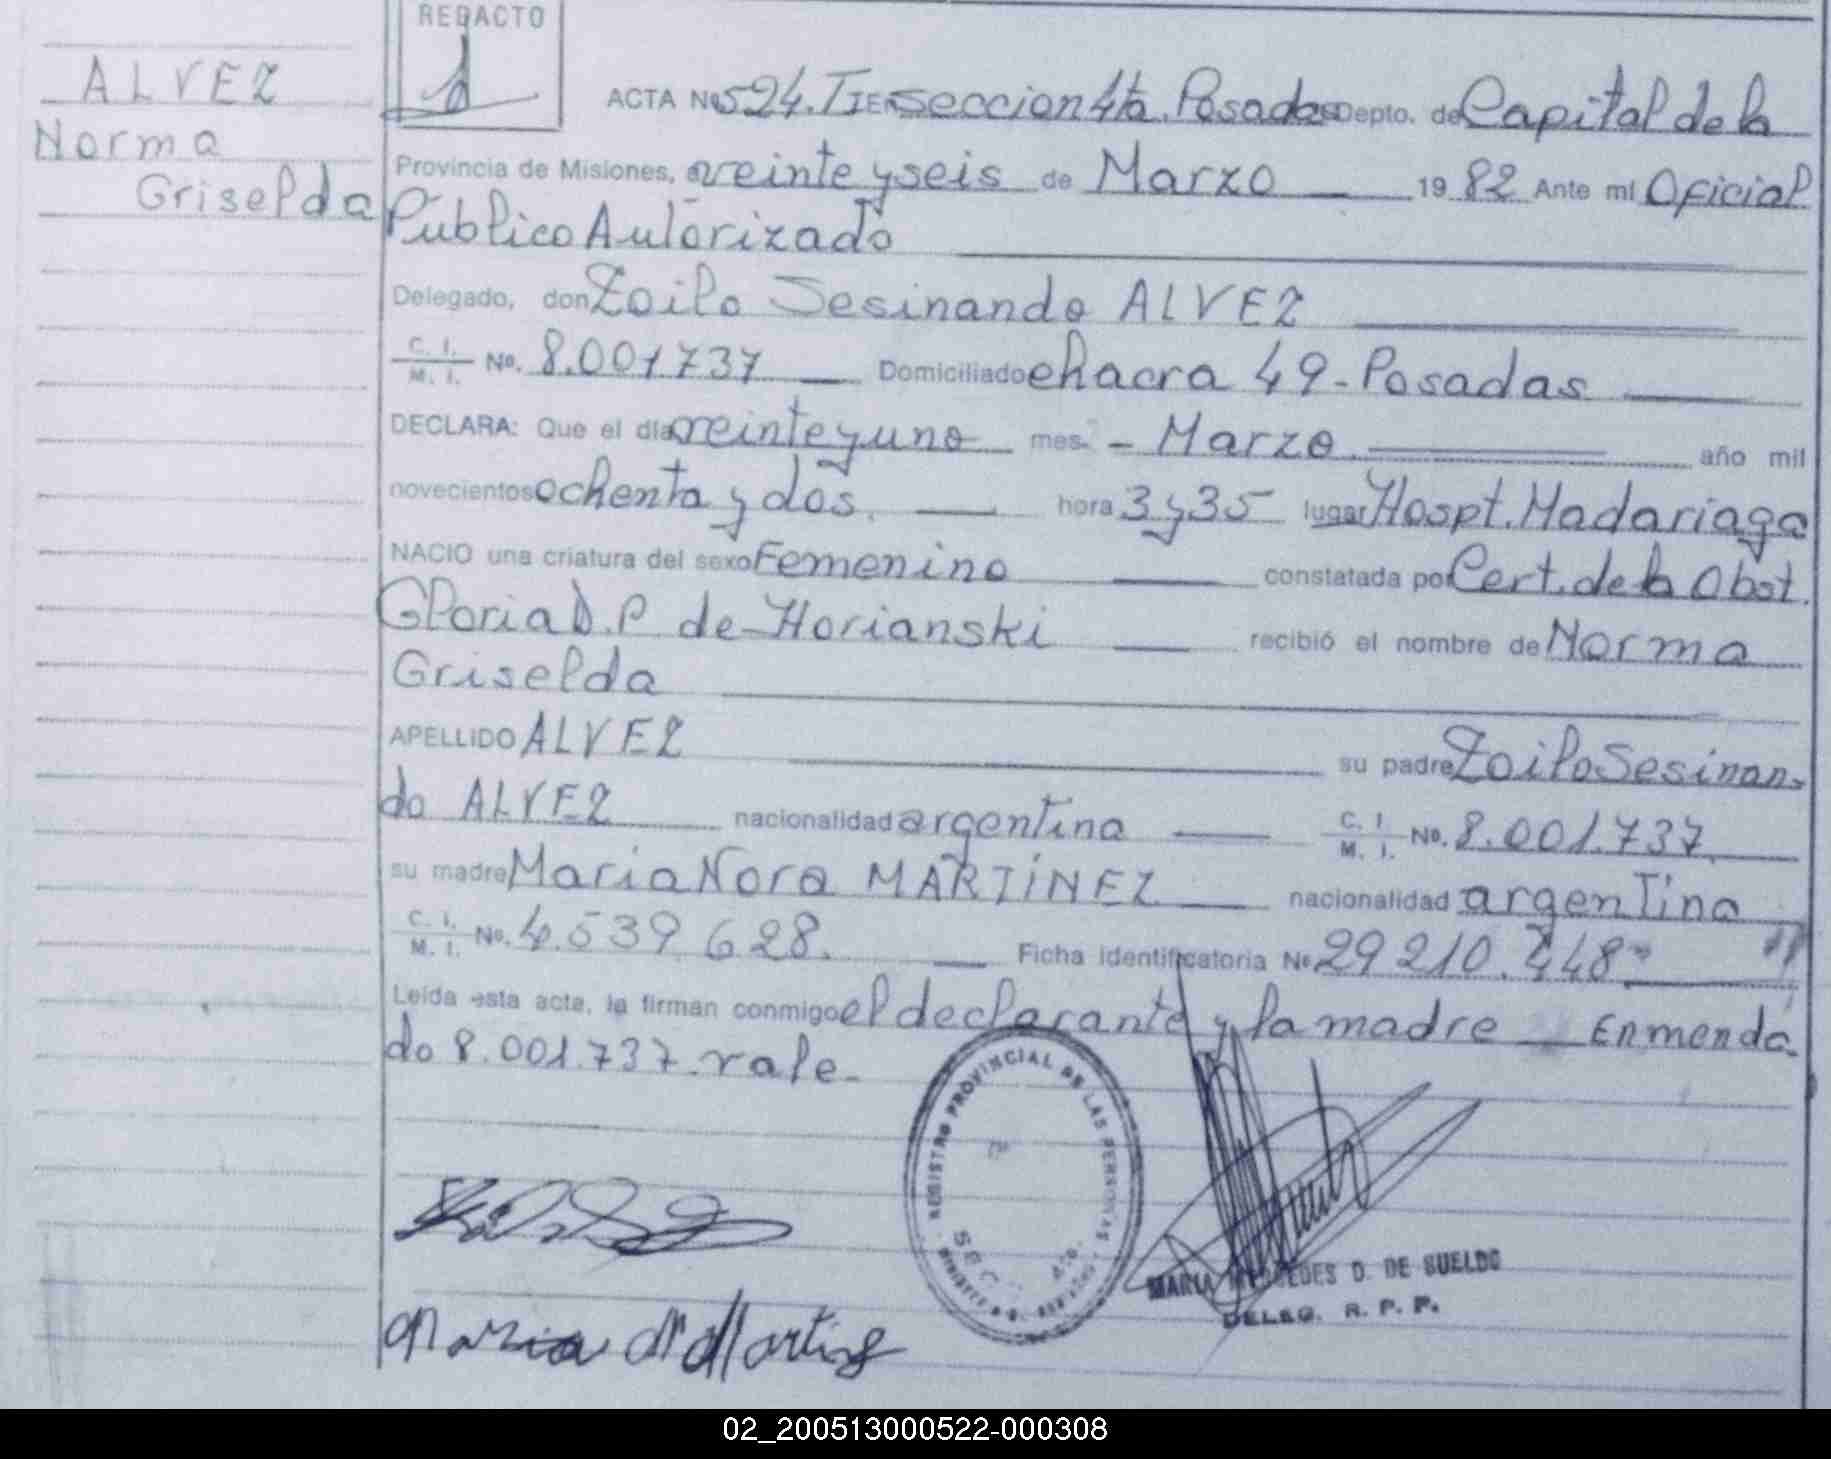 REDACTO
ALVEZ
Norma
Griselda
ACTA Nº 524. T I EN Seccion 4ta. Posadas Depto. de Capital de la
Provincia de Misiones, a veinte y seis de Marzo 19 82 Ante mí Oficial
Público Autorizado
Delegado, don Zoilo Sesinando ALVEZ
C. I. M. I. No. 8.001737 Domiciliado chacra 49 - Posadas
DECLARA: Que el día veinte y uno mes - Marzo. año mil
novecientos ochenta y dos. hora 3 y 35 lugar Hospt. Madariaga
NACIO una criatura del sexo Femenino constatada por Cert. de la Obst.
Gloria D. P. de Horianski recibió el nombre de Norma
Griselda
APELLIDO ALVEZ su padre Zoilo Sesinan-
do ALVEZ nacionalidad argentina C. I. M. I. No. 8.001.737.
su madre Maria Nora MARTINEZ nacionalidad argentina
C. I. M. I. No. 4.539.628. Ficha identificatoria Nº 29 210.448-
Leída esta acta, la firman conmigo el declarante y la madre Enmenda-
do 8.001.737. vale-
REGISTRO PROVINCIAL DE LAS PERSONAS
SEC. 4ta.
MARIA MERCEDES D. DE SUELDO
DELEG. R. P. P.
Maria N Martinez
02_200513000522-000308